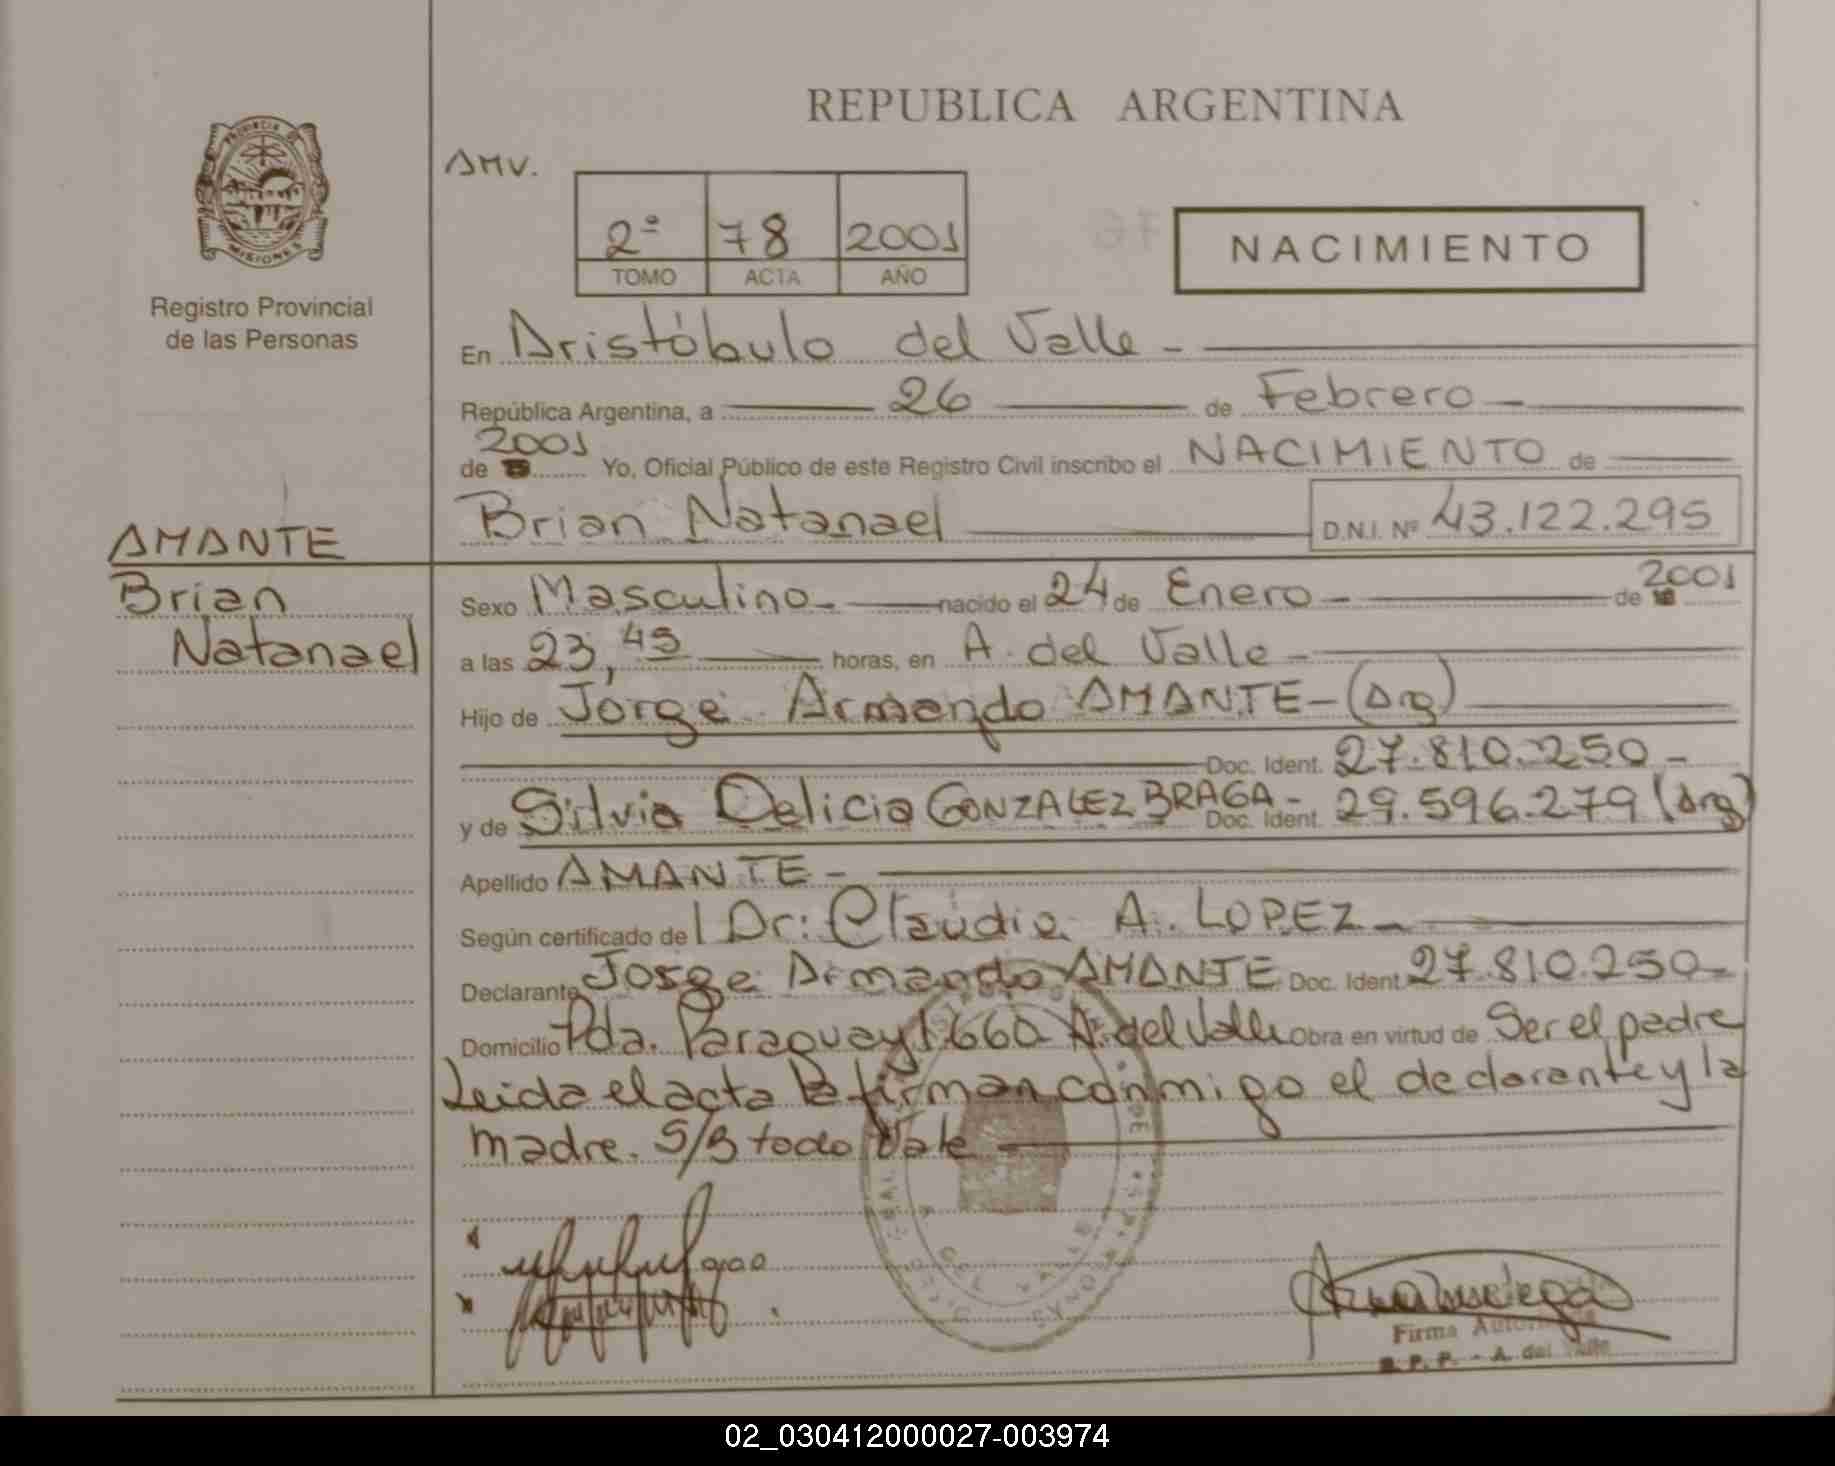 REPUBLICA ARGENTINA
PROVINCIA DE
MISIONES
Registro Provincial
de las Personas
AMV.
2º 78 2001
TOMO ACTA AÑO
NACIMIENTO
En Aristóbulo del Valle -
República Argentina, a 26 de Febrero -
de 2001 Yo, Oficial Público de este Registro Civil inscribo el NACIMIENTO de
Brian Natanael D.N.I. Nº 43.122.295
AMANTE
Brian
Natanael
Sexo Masculino - nacido el 24 de Enero - de 2001
a las 23,45 horas, en A. del Valle -
Hijo de Jorge Armando AMANTE - (Arg)
Doc. Ident. 27.810.250 -
y de Silvia Delicia GONZALEZ BRAGA - Doc. Ident. 29.596.279 (Arg)
Apellido AMANTE -
Según certificado del Dr: Claudio A. LOPEZ -
Declarante Jorge Armando AMANTE Doc. Ident. 27.810.250 -
Domicilio Pda. Paraguay 1.660 A. del Valle Obra en virtud de Ser el padre
Leida el acta la firman conmigo el declarante y la
madre. S/B todo Vale
DEL VALLE
Firma
R.P.P. - A. del Valle
02_030412000027-003974